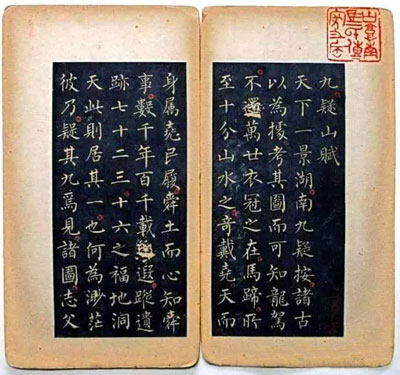 九疑山賦
天下一景湖南九疑按諸古
以為據考其圖而可知龍駕
不還萬世衣冠之在馬蹄所
至十分山水之奇戴堯天而
身属堯履舜土而心知舜
事數千年百千載之遐蹤遺
跡七十二三十六之福地洞
天此則居其一也何為渺茫
彼乃疑其九焉見諸圖志父